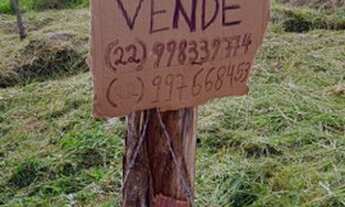 VENDE
(22) 998339774
(22) 997668453